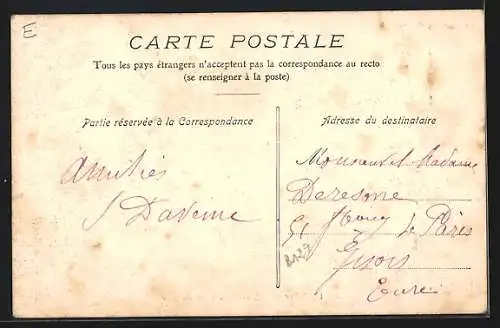 E
CARTE POSTALE
Tous les pays étrangers n'acceptent pas la correspondance au recto
(se renseigner à la poste)
Partie réservée à la Correspondance
Amitiés
Adresse du destinataire
Monsieur et Madame
de Paris
Gisors
Eure